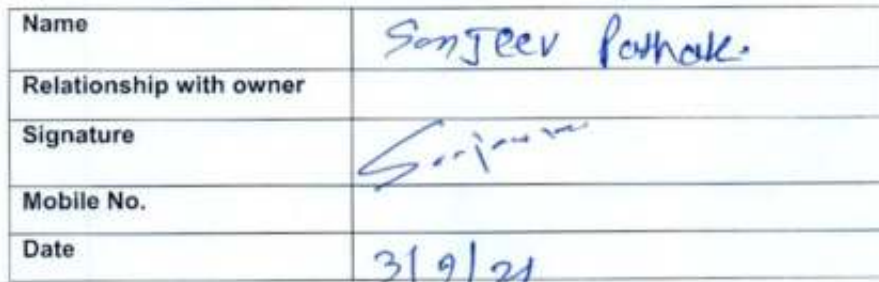 Name Sanjeev Pathak.
Relationship with owner
Signature
Mobile No.
Date 3/9/21